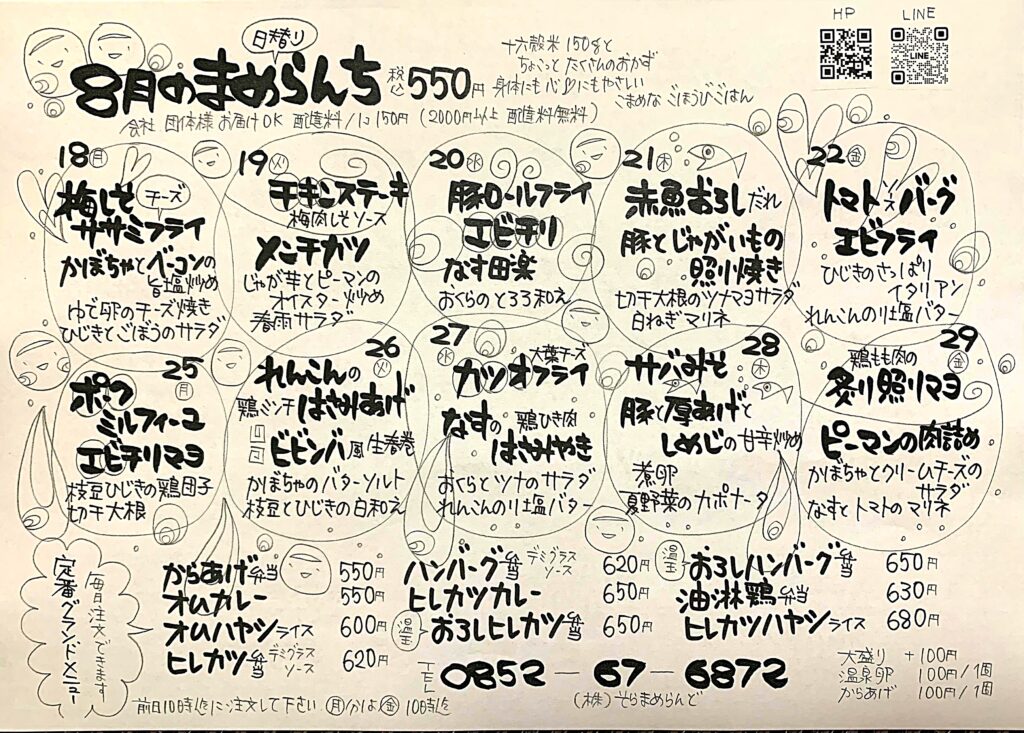 HP
LINE
LINE
日替り
8月のまめらんち 税込550円
十六穀米150gと
ちょこっと たくさんのおかず
身体にも心にもやさしい
こまめな ごほうびごはん
会社 団体様 お届けOK 配達料/1コ150円 (2000円以上 配達料無料)
18 月
梅しそ
チーズ
ササミフライ
かぼちゃとベーコンの
旨塩炒め
ゆで卵のチーズ焼き
ひじきとごぼうのサラダ
19 火
チキンステーキ
梅肉しそソース
メンチカツ
じゃが芋とピーマンの
オイスター炒め
春雨サラダ
20 水
豚ロールフライ
エビチリ
なす田楽
おくらのとろろ和え
21 木
赤魚おろしだれ
豚とじゃがいもの
照り焼き
切干大根のツナマヨサラダ
白ねぎマリネ
22 金
トマトソースバーグ
エビフライ
ひじきのさっぱり
イタリアン
れんこんのり塩バター
25 月
ポーク
ミルフィーユ
エビチリマヨ
枝豆ひじきの鶏団子
切干大根
26 火
れんこんの
鶏ミンチ はさみあげ
ビビンバ風生春巻
かぼちゃのバターソルト
枝豆とひじきの白和え
27 水
大葉チーズ
カツオフライ
なすの 鶏ひき肉
はさみやき
おくらとツナのサラダ
れんこんのり塩バター
28 木
サバみそ
豚と厚あげと
しめじの甘辛炒め
煮卵
夏野菜のカポナータ
29 金
鶏もも肉の
炙り照りマヨ
ピーマンの肉詰め
かぼちゃとクリームチーズの
サラダ
なすとトマトのマリネ
毎日注文できます
定番グランドメニュー
からあげ弁当 550円
オムカレー 550円
オムハヤシライス 600円
ヒレカツ弁当 デミグラスソース 620円
ハンバーグ弁当 デミグラスソース 620円
ヒレカツカレー 650円
温玉 おろしヒレカツ弁当 650円
温玉 おろしハンバーグ弁当 650円
油淋鶏弁当 630円
ヒレカツハヤシライス 680円
TEL 0852-67-6872
(株)そらまめらんど
大盛り +100円
温泉卵 100円/1個
からあげ 100円/1個
前日10時迄にご注文して下さい 月かは金10時迄